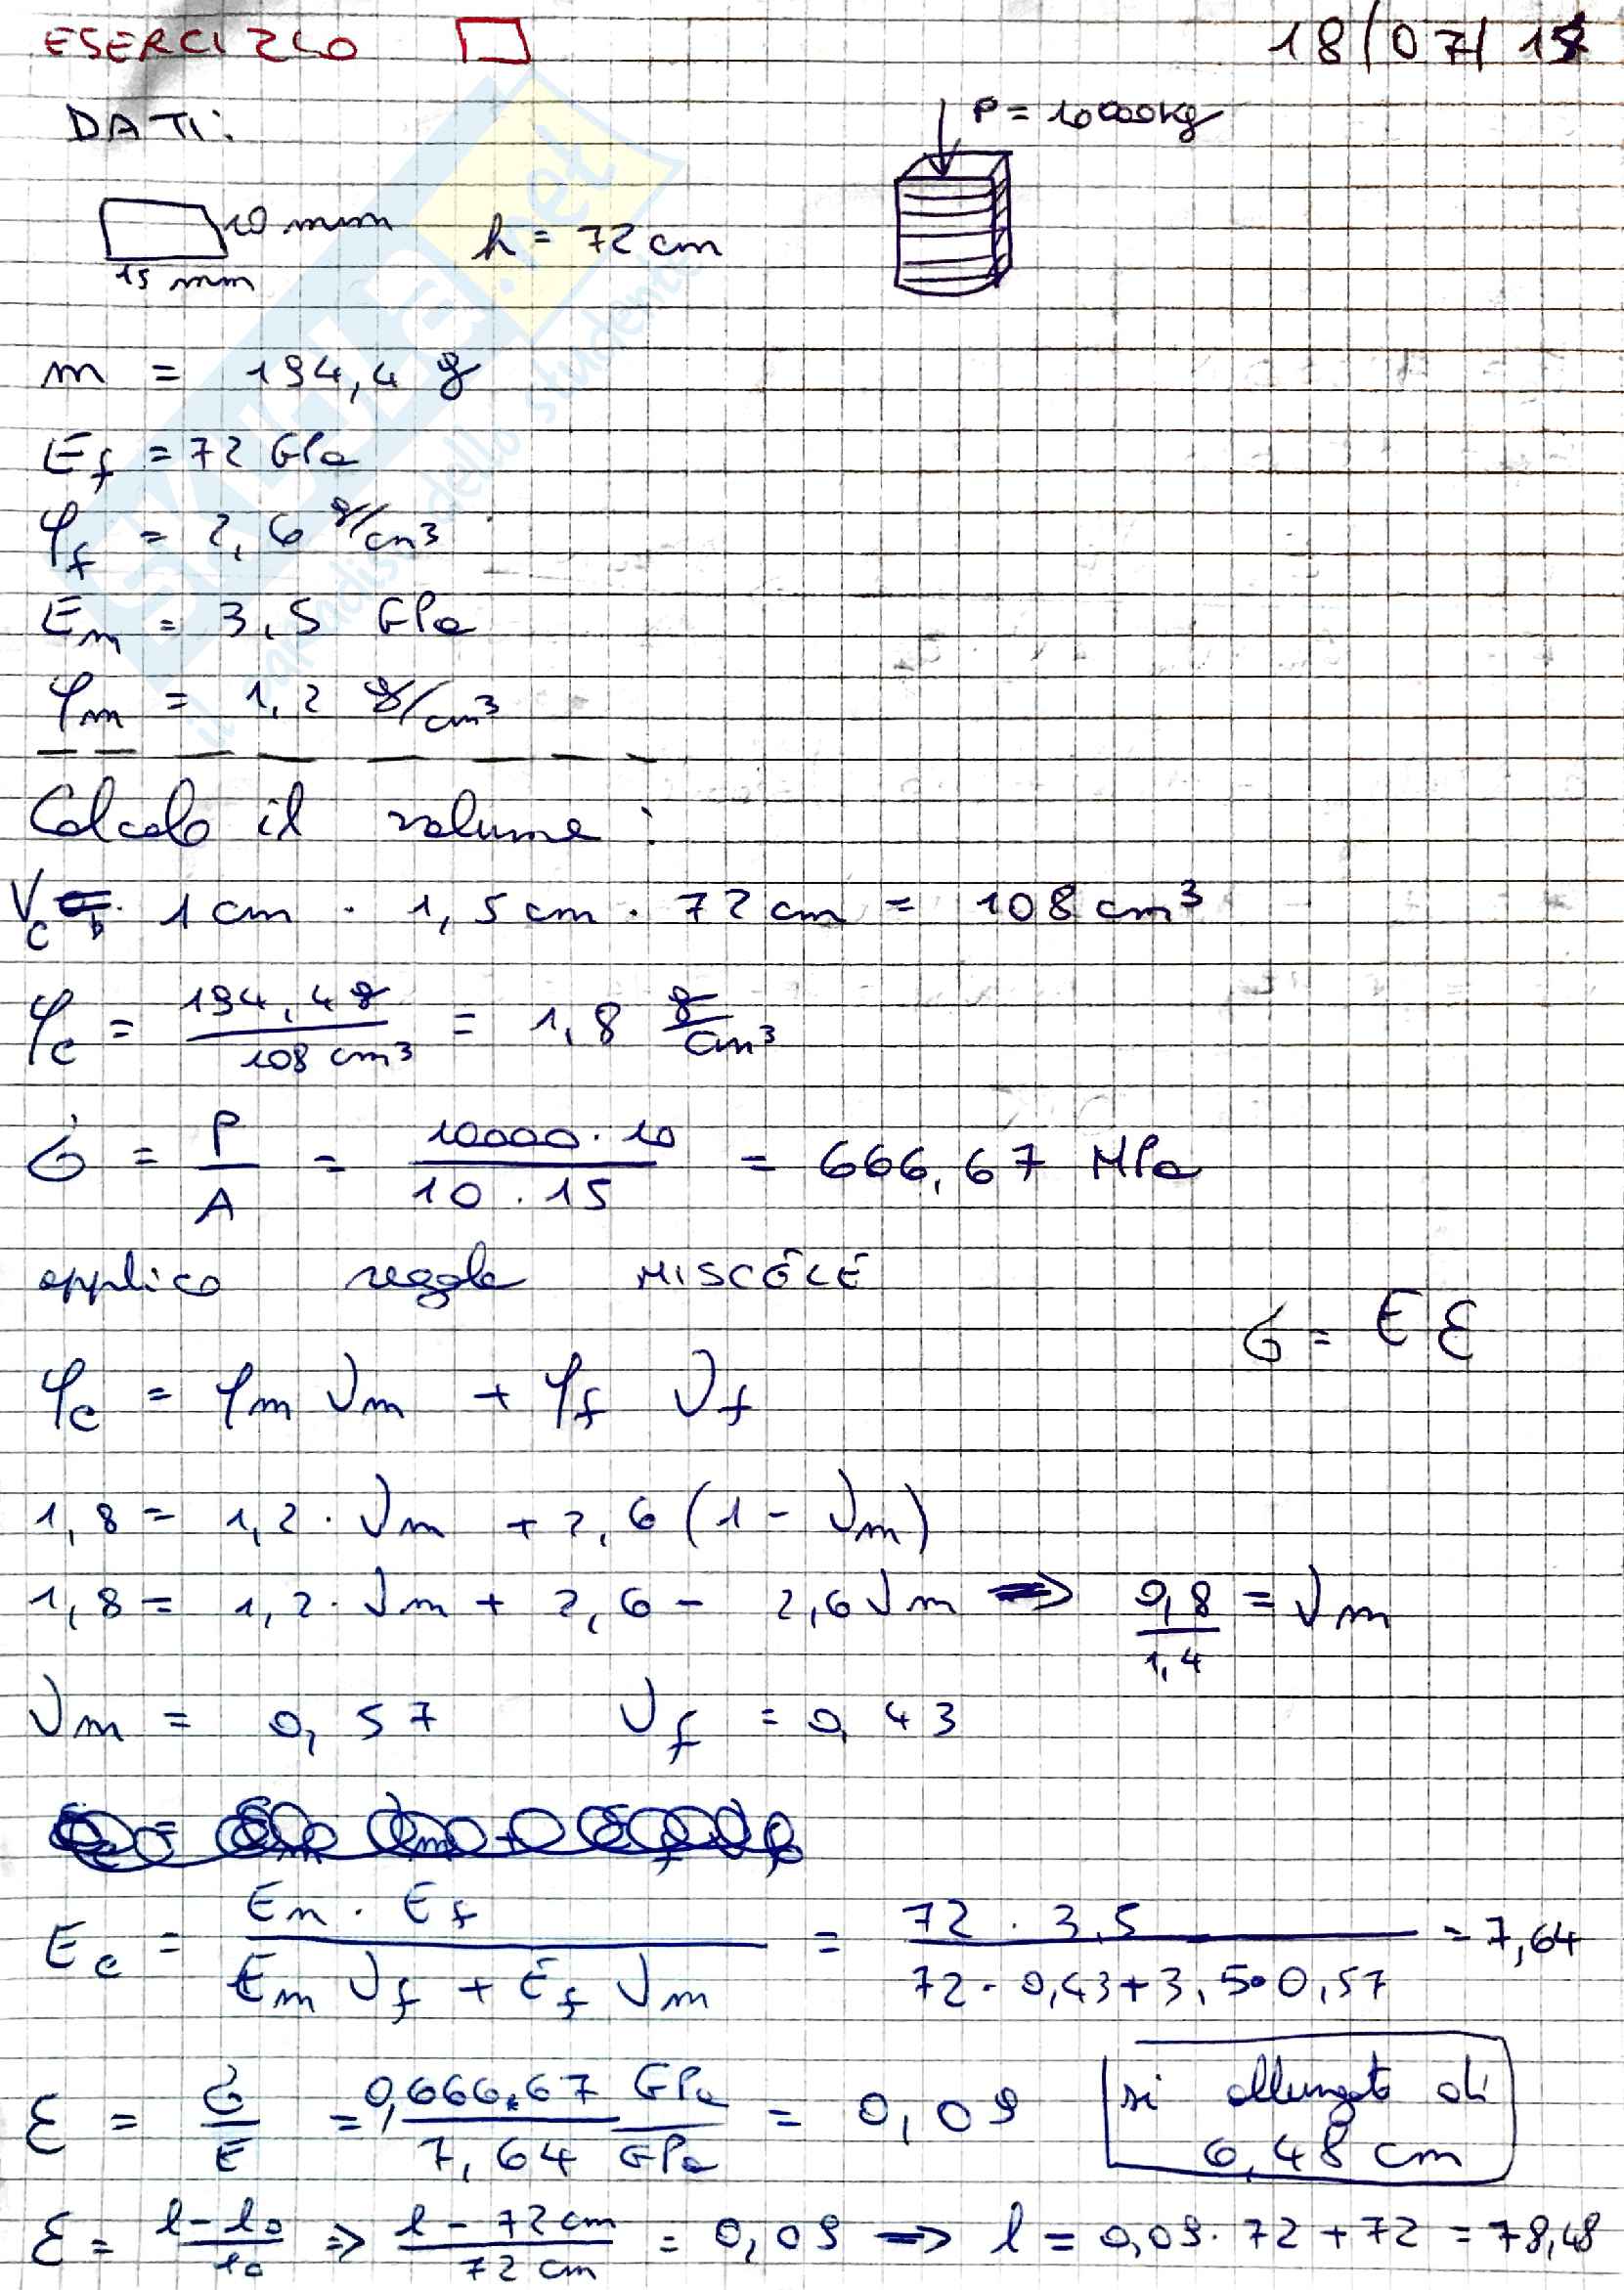 ESERCIZIO 18/07/17
DATI:
P = 10000kg
10 mm
15 mm
h = 72 cm
m = 194,4 g
E_f = 72 GPa
φ_f = 2,6 g/cm³
E_m = 3,5 GPa
φ_m = 1,2 g/cm³
Calcolo il volume:
V_c = 1 cm · 1,5 cm · 72 cm = 108 cm³
φ_c = 194,4 g / 108 cm³ = 1,8 g/cm³
σ = P/A = 10000 · 10 / 10 · 15 = 666,67 MPa
applico regola MISCELE
σ = E ε
φ_c = φ_m V_m + φ_f V_f
1,8 = 1,2 · V_m + 2,6 (1 - V_m)
1,8 = 1,2 · V_m + 2,6 - 2,6 V_m ⇒ 0,8/1,4 = V_m
V_m = 0,57 V_f = 0,43
E_c = E_m · E_f / E_m V_f + E_f V_m = 72 · 3,5 / 72 · 0,43 + 3,5 · 0,57 = 7,64
ε = σ/E = 0,666.67 GPa / 7,64 GPa = 0,09
si allungato di
6,48 cm
ε = l - l₀ / l₀ ⇒ l - 72 cm / 72 cm = 0,09 ⇒ l = 0,09 · 72 + 72 = 78,48
SKUOLA.net
il paradiso dello studente